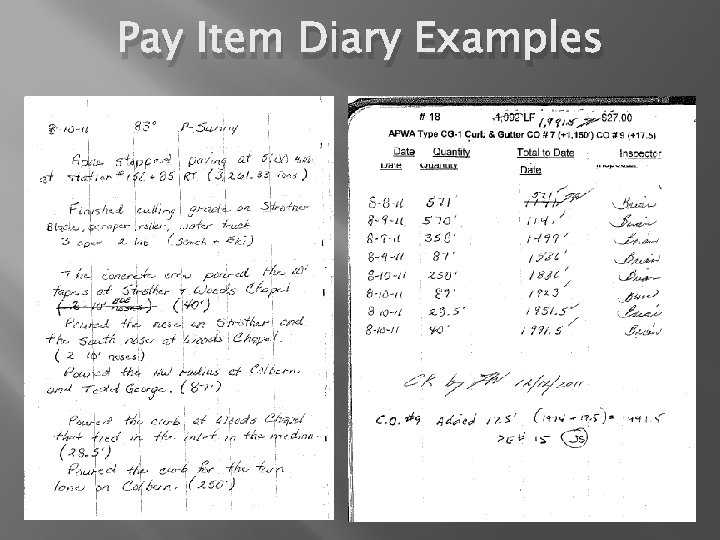 Pay Item Diary Examples
8-10-11 83° P-Sunny
stopped paving at
at station # 156+85 RT (3,261.33 Tons)
Finished cutting grade on Strother
Blade, scraper, roller, water truck
3 oper 2 lab
The concrete crew poured the 10'
tapes at Strother & Woods Chapel
(40')
Poured the nose on Strother and
the South nose at Woods Chapel.
(2 10' noses)
Poured the NW radius at Colbern
and Todd George. (87')
Poured the curb at Woods Chapel
that tied in the inlet in the median.
(28.5')
Poured the curb for the turn
lane on Colbern. (250')
# 18 1,991.5' $27.00
APWA Type CG-1 Curb & Gutter CO #7 (+1,150') CO #9 (+17.5)
Date Quantity Total to Date Inspector
Date Quantity Date Inspector
8-8-11 571' 571' Brian
8-9-11 570' 1141' Brian
8-9-11 358' 1499' Brian
8-9-11 87' 1586' Brian
8-10-11 250' 1836' Brian
8-10-11 87' 1923' Brian
8-10-11 28.5' 1951.5' Brian
8-10-11 40' 1991.5' Brian
CK by 12/12/2011
C.O. #9 Added 17.5'